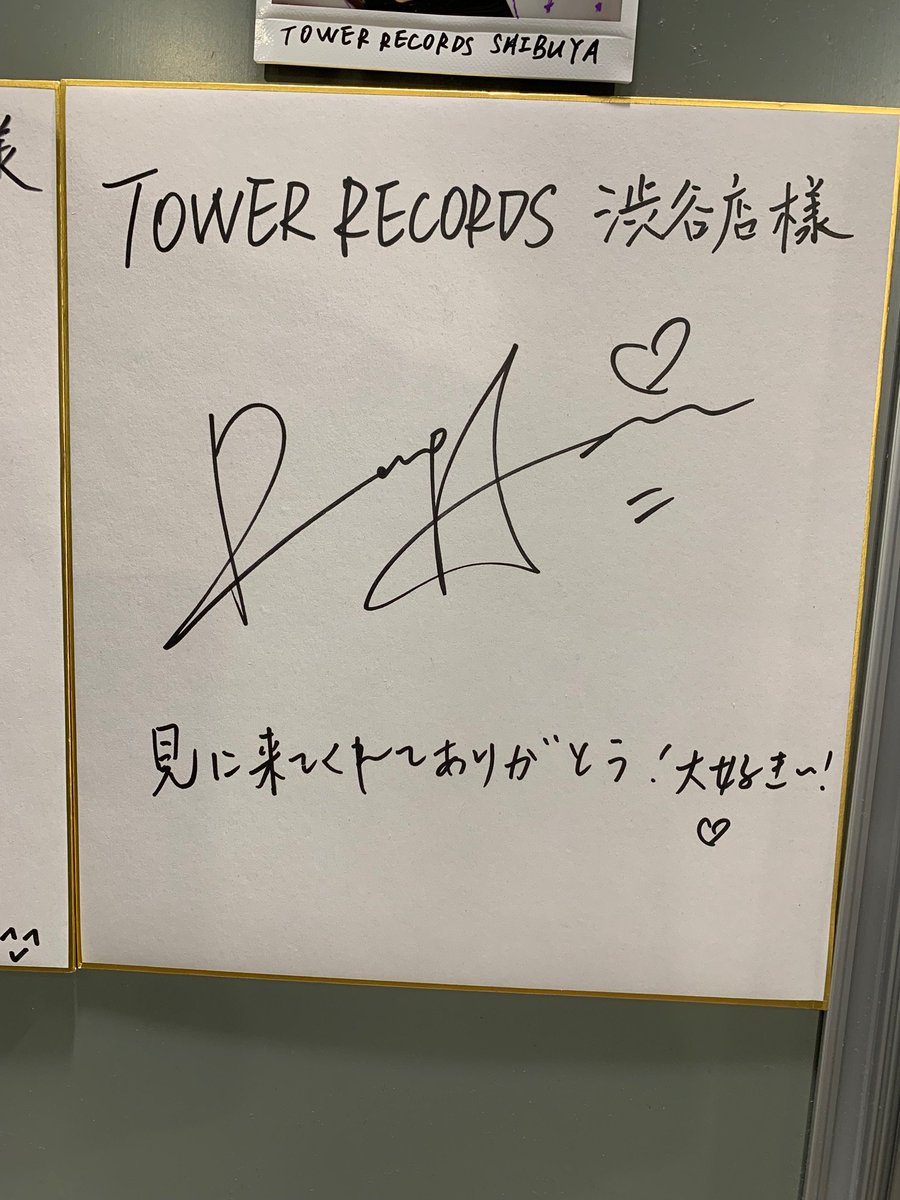 TOWER RECORDS SHIBUYA
様
TOWER RECORDS 渋谷店様
見に来てくれてありがとう！大好きぃ！